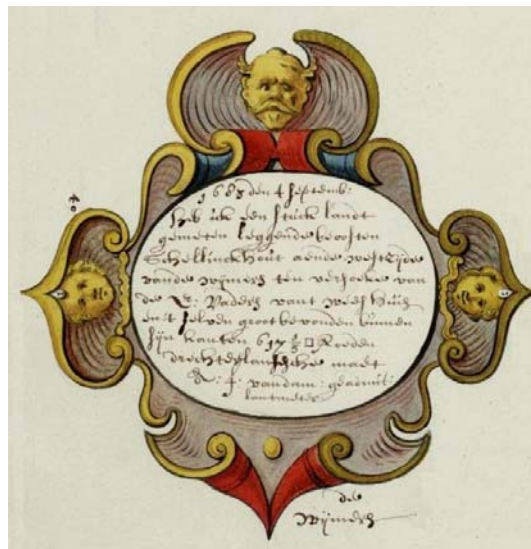 1683 den 4 Septemb:
Heb ick een stuck landt
gemeten leggende beoosten
Schellinckhout aende westzijde
vande wijmers ten versoecke van
de E: Vaders vant weeshuis
en't selven groot bevonden binnen
sijn kanten 617 ⅔ □ Roeden
drechterlandsche maet
vandam: geadmit:
lantmeter
de
wijmers